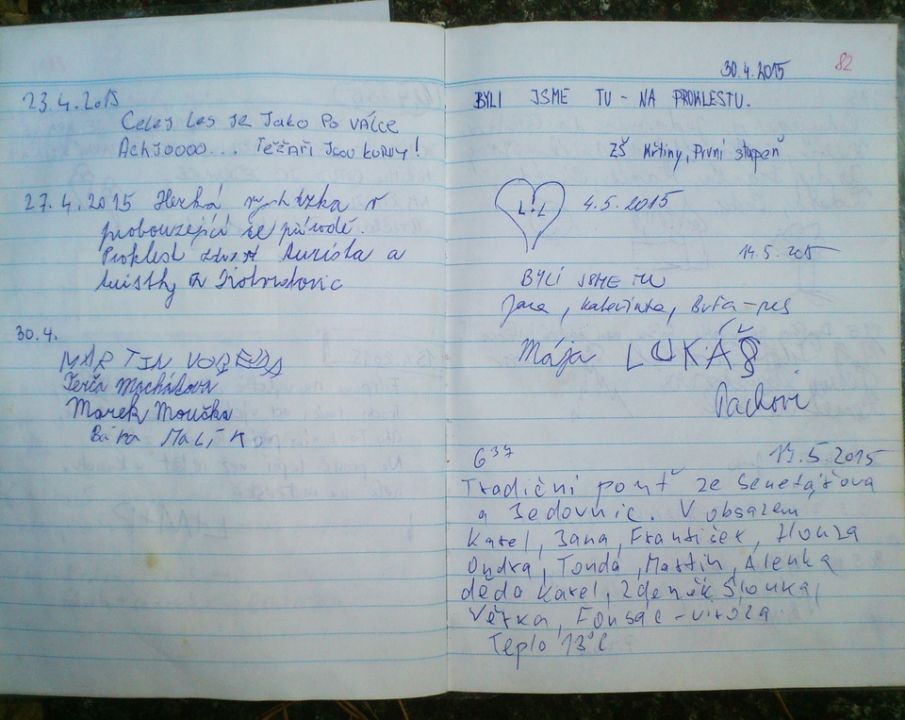 23.4.2015
Celej les je jako po válce
Achjoooo... Těžaři jsou kurvy!
27.4.2015 Hezká vycházka v
probouzející se přírodě.
Proklest zdraví turista a
turistky z
30.4.
MARTIN
Terča Macháčova
Marek Moučka
Bára MALÍK
30.4.2015 82
BYLI JSME TU - NA PROKLESTU.
ZŠ Křtiny, První stupeň
L+L 4.5.2015
14.5.2015
BYLI JSME TU
Jana, Kateřinka, Bufa-pes
Mája LUKÁŠ
Pachovi
6³⁷ 17.5.2015
Tradiční pouť ze Senetářova
a Jedovnic. V obsazení
Karel, Jana, Frantiček, Honza
Ondra, Tonda, Martin, Alenka
děda Karel, Zdeněk Slouka,
Věrka, Fousáč - viróza
Teplo 13°C